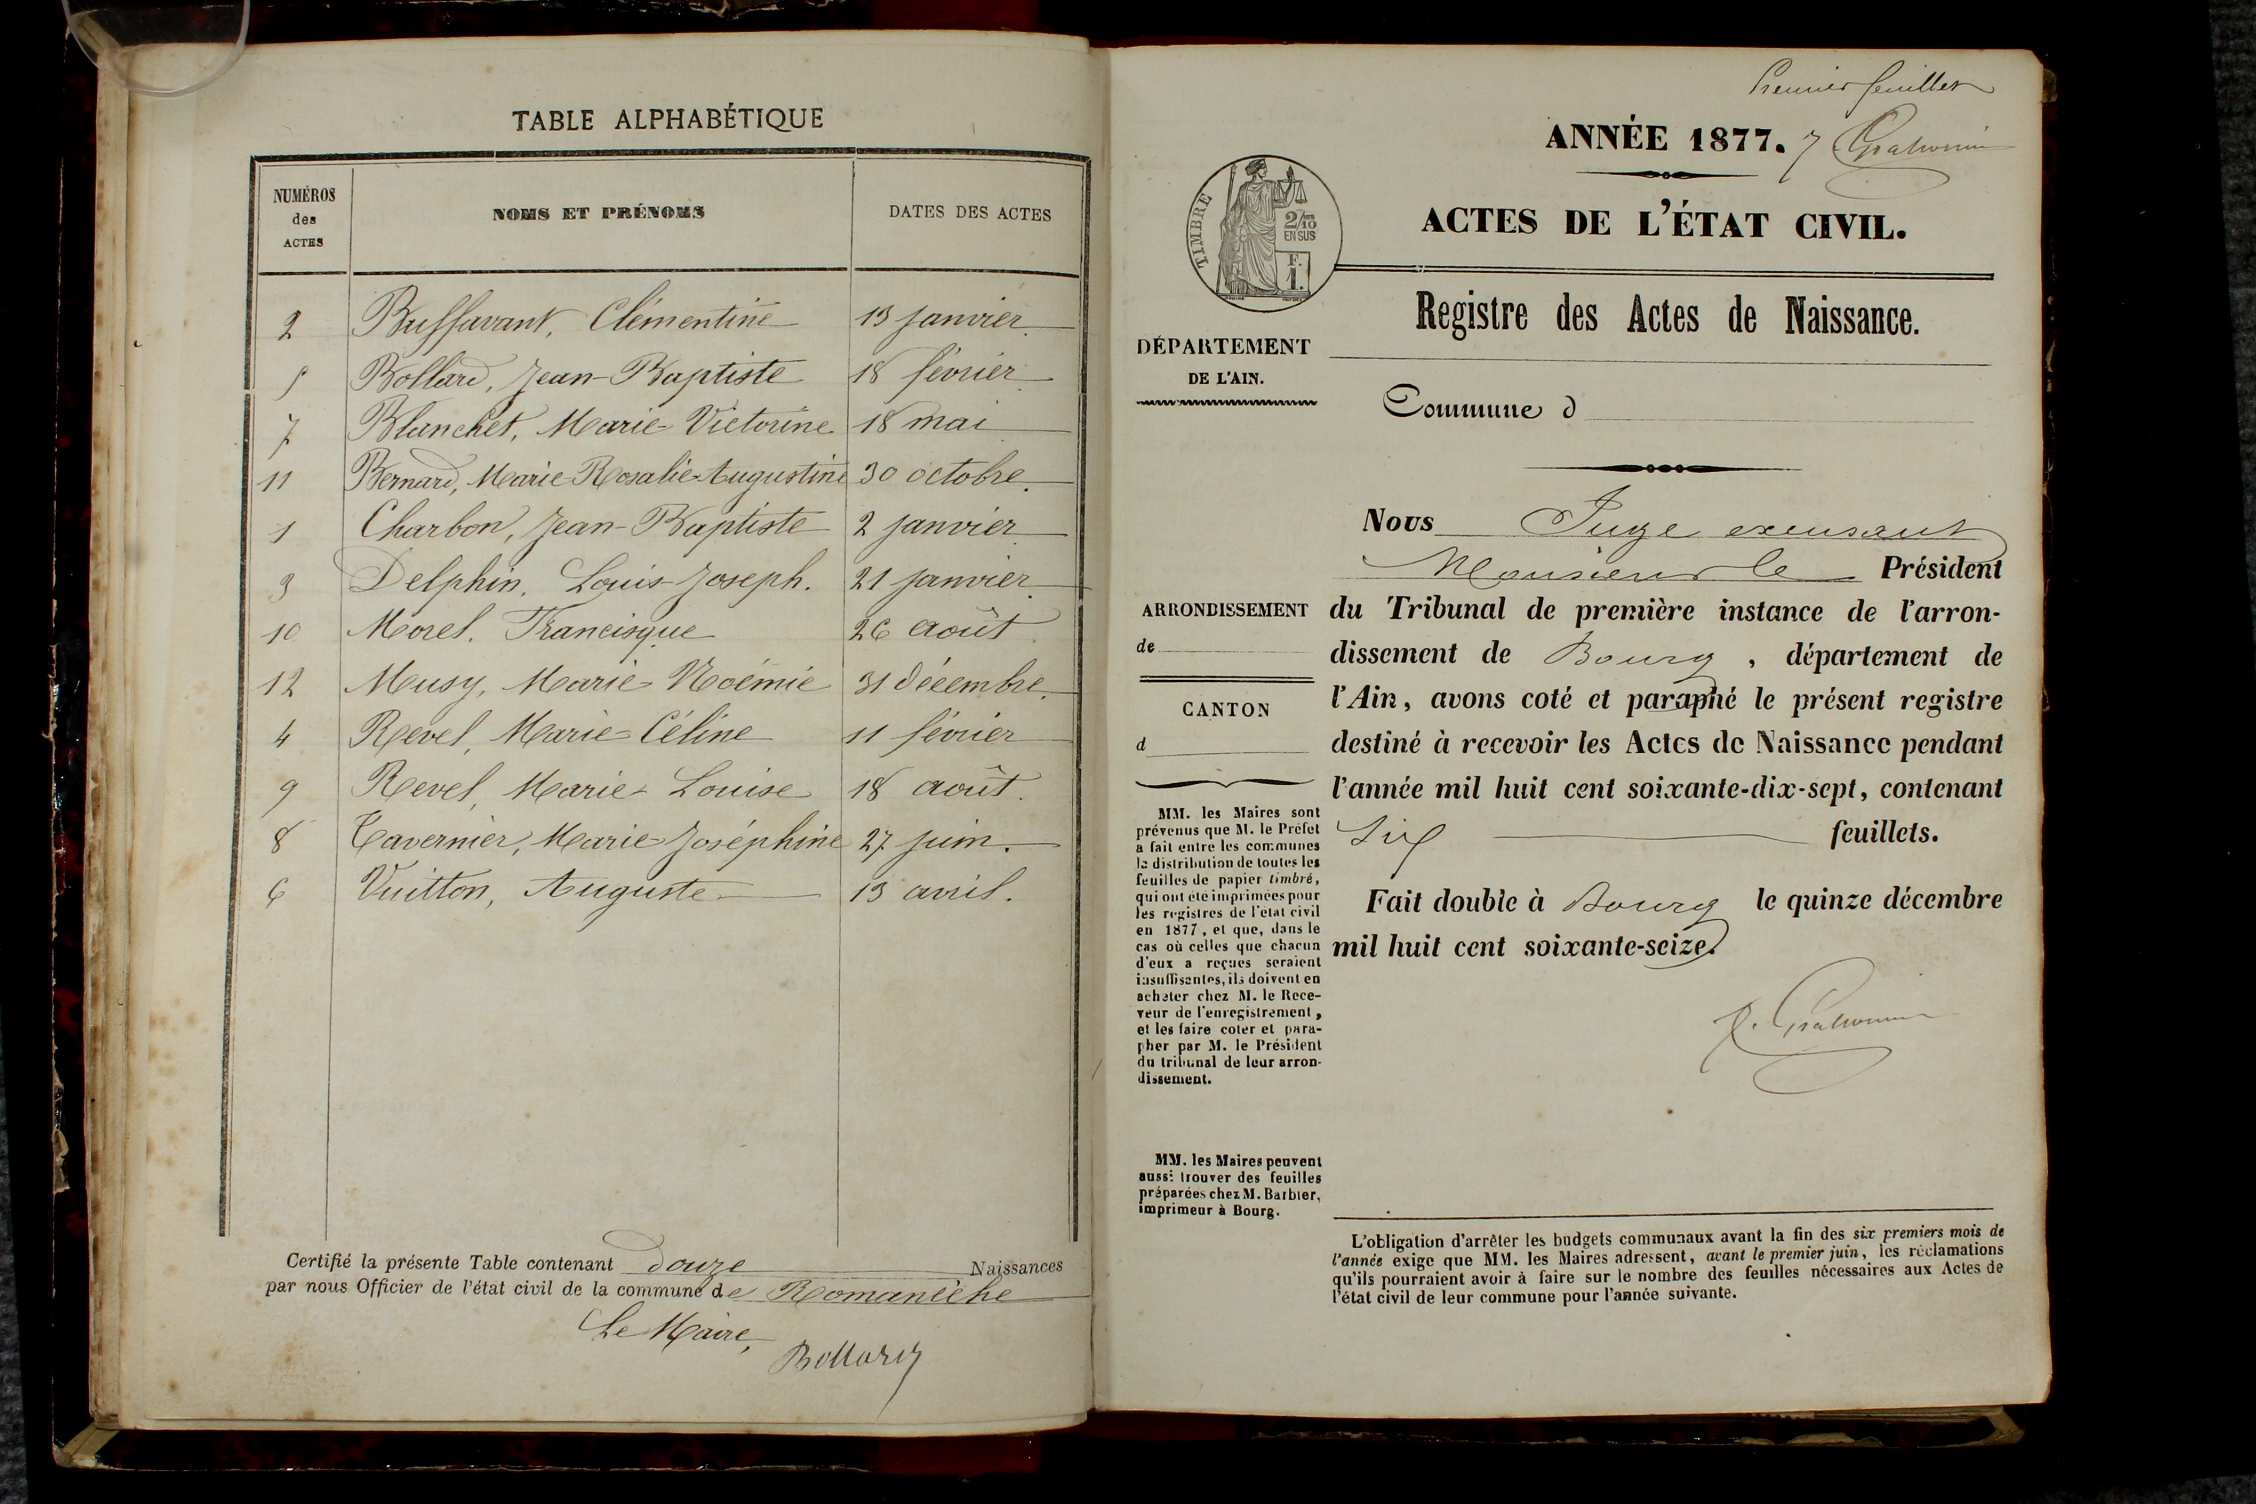 TABLE ALPHABÉTIQUE
NUMÉROS des ACTES
NOMS ET PRÉNOMS
DATES DES ACTES
2 Buffavant, Clémentine 13 janvier.
5 Bollard, Jean-Baptiste 18 février
7 Blanchet, Marie-Victorine 18 mai
11 Bernard, Marie-Rosalie-Augustine 30 octobre.
1 Charbon, Jean-Baptiste 2 janvier.
3 Delphin, Louis-Joseph. 21 janvier.
10 Morel, Francisque 26 août.
12 Musy, Marie-Noémie 31 décembre.
4 Revel, Marie-Céline 11 février
9 Revel, Marie-Louise 18 août.
8 Tavernier, Marie-Joséphine 27 juin.
6 Vuitton, Auguste 13 avril.
Certifié la présente Table contenant douze Naissances
par nous Officier de l'état civil de la commune de Romanèche
Le Maire,
Bollard
Premier feuillet
ANNÉE 1877.
ACTES DE L'ÉTAT CIVIL.
TIMBRE
2/10
EN SUS
F.
1.
Registre des Actes de Naissance.
DÉPARTEMENT
DE L'AIN.
Commune d
Nous Juge excusant
Monsieur le Président
ARRONDISSEMENT
de
CANTON
d
du Tribunal de première instance de l'arron-
dissement de Bourg, département de
l'Ain, avons coté et paraphé le présent registre
destiné à recevoir les Actes de Naissance pendant
l'année mil huit cent soixante-dix-sept, contenant
Six feuillets.
Fait double à Bourg le quinze décembre
mil huit cent soixante-seize.
MM. les Maires sont
prévenus que M. le Préfet
a fait entre les communes
la distribution de toutes les
feuilles de papier timbré,
qui ont été imprimées pour
les registres de l'état civil
en 1877, et que, dans le
cas où celles que chacun
d'eux a reçues seraient
insuffisantes, ils doivent en
acheter chez M. le Rece-
veur de l'enregistrement,
et les faire coter et para-
pher par M. le Président
du tribunal de leur arron-
dissement.
MM. les Maires peuvent
aussi trouver des feuilles
préparées chez M. Barbier,
imprimeur à Bourg.
L'obligation d'arrêter les budgets communaux avant la fin des six premiers mois de
l'année exige que MM. les Maires adressent, avant le premier juin, les réclamations
qu'ils pourraient avoir à faire sur le nombre des feuilles nécessaires aux Actes de
l'état civil de leur commune pour l'année suivante.